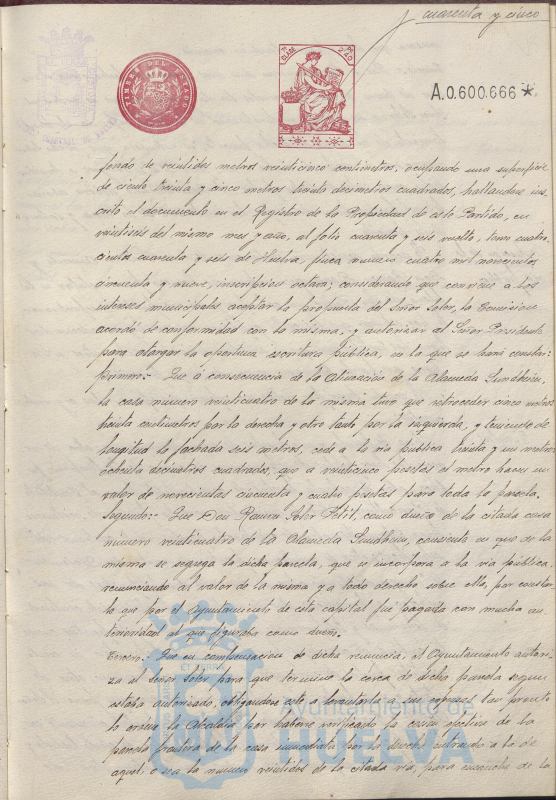 cuarenta y cinco
TIMBRE DEL ESTADO
A.0.600.666 ★
fondo de veintidos metros veinticinco centimetros, ocupando una superficie
de ciento treinta y cinco metros treinta decimetros cuadrados, hallandose ins-
crito el documento en el Registro de la Propiedad de este Partido, en
veintiseis del mismo mes y año, al folio cuarenta y seis vuelto, tomo cuatro-
cientos cuarenta y seis de Huelva, finca numero cuatro mil novecientos
cincuenta y nueve, inscripcion octava; considerando que conviene a los
intereses municipales aceptar la propuesta del Señor Soler, la Comision
acordó de conformidad con la misma, y autorizar al Señor Presidente
para otorgar la oportuna escritura pública, en la que se hara constar:
Primero:- Que á consecuencia de la alineacion de la Alameda Sundheim,
la casa numero veinticuatro de la misma tuvo que retroceder cinco metros
treinta centimetros por la derecha y otro tanto por la izquierda, y teniendo de
longitud la fachada seis metros, cede a la via publica treinta y un metros
ochenta decimetros cuadrados, que a veinticinco pesetas el metro hacen un
valor de novecientas cincuenta y cuatro pesetas para toda la parcela.
Segundo:- Que Don Ramon Soler Petit, como dueño de la citada casa
número veinticuatro de la Alameda Sundheim, consiente en que de la
misma se segregue la dicha parcela, que se incorpora a la via pública,
renunciando al valor de la misma y a todo derecho sobre ella, por constar-
le que por el Ayuntamiento de esta capital fué pagada con mucha an-
terioridad al que figuraba como dueño.
Tercero.- Que en compensacion de dicha renuncia, el Ayuntamiento autori-
za al Señor Soler para que termine la cerca de dicha parcela segun
estaba autorizado, obligandose este a levantarla a sus expensas tan pronto
lo ordene la Alcaldia por haberse verificado la cesion efectiva de la
parcela frontera de la casa inmediata por la derecha entrando a la de
aquel, o sea la numero veintidos de la citada via, para ensanche de la
Ayuntamiento de
HUELVA